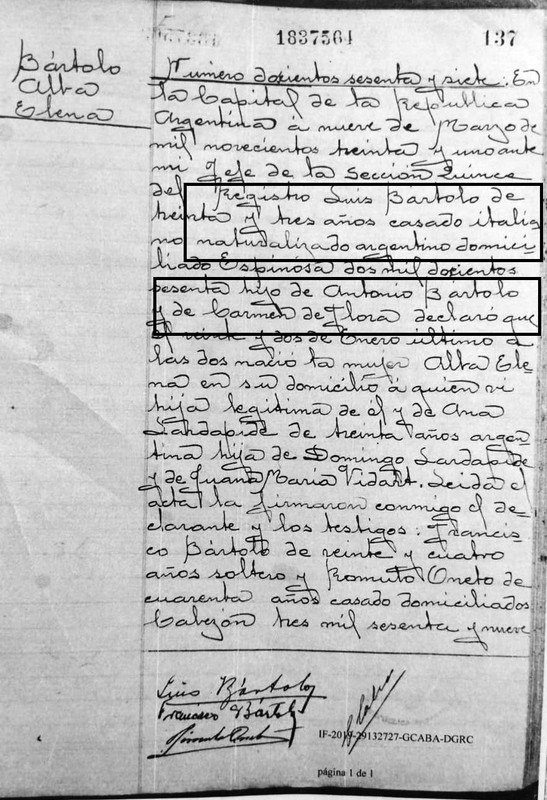 1837564
137
Bártolo
Alba
Elena
Número doscientos sesenta y siete. En
la Capital de la República
Argentina á nueve de Marzo de
mil novecientos treinta y uno ante
mi Jefe de la Sección Quince
del Registro Luis Bártolo de
treinta y tres años casado italia
no naturalizado argentino domici-
liado Espinosa dos mil doscientos
sesenta hijo de Antonio Bartolo
y de Carmen de Flora declaró que
el veinte y dos de Enero último á
las dos nació la mujer Alba Ele-
na en su domicilio á quien vi
hija legítima de él y de Ana
Lardapide de treinta años argen-
tina hija de Domingo Lardapide
y de Juana María Vidart. Leida el
acta la firmaron conmigo el de-
clarante y los testigos: Francis-
co Bártolo de veinte y cuatro
años soltero y Romulo Oneto de
cuarenta años casado domiciliados
Cabezón tres mil sesenta y nueve
Luis Bártolo
Francisco Bártolo
IF-2019-29132727-GCABA-DGRC
página 1 de 1